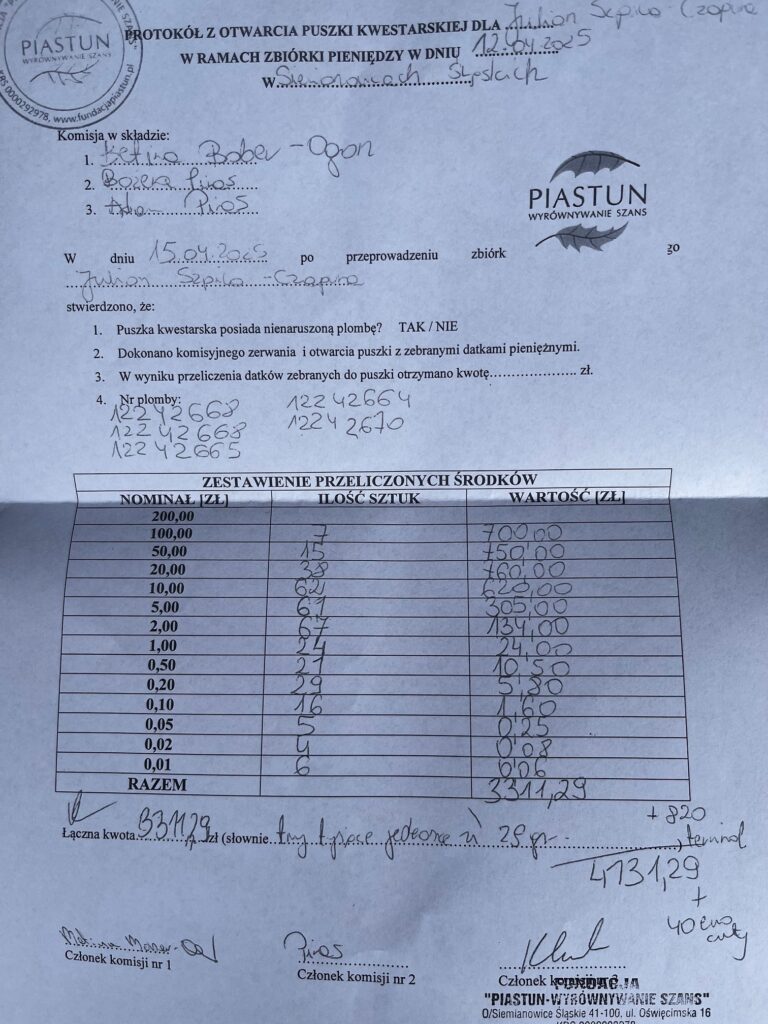 PIASTUN
WYRÓWNYWANIE SZANS
KRS 0000292978, www.fundacjapiastun.pl
PROTOKÓŁ Z OTWARCIA PUSZKI KWESTARSKIEJ DLA Julian Szpila-Czapura
W RAMACH ZBIÓRKI PIENIĘDZY W DNIU 12.04.2025
W Siemianowicach Śląskich
Komisja w składzie:
1. Bober-Ogon
2. Bożena Piras
3. Adam Piras
PIASTUN
WYRÓWNYWANIE SZANS
W dniu 15.04.2025 po przeprowadzeniu zbiórk go
Julian Szpila-Czapura
stwierdzono, że:
1. Puszka kwestarska posiada nienaruszoną plombę? TAK / NIE
2. Dokonano komisyjnego zerwania i otwarcia puszki z zebranymi datkami pieniężnymi.
3. W wyniku przeliczenia datków zebranych do puszki otrzymano kwotę.................... zł.
4. Nr plomby:
12242668 12242664
12242668 12242670
12242665
ZESTAWIENIE PRZELICZONYCH ŚRODKÓW
NOMINAŁ [ZŁ] ILOŚĆ SZTUK WARTOŚĆ [ZŁ]
200,00
100,00 7 700,00
50,00 15 750,00
20,00 38 760,00
10,00 62 620,00
5,00 61 305,00
2,00 67 134,00
1,00 24 24,00
0,50 21 10,50
0,20 29 5,80
0,10 16 1,60
0,05 5 0,25
0,02 4 0,08
0,01 6 0,06
RAZEM 3311,29
+ 820
Łączna kwota 3311,29 zł (słownie trzy tysiące zł 29 gr. ) terminal
4131,29
+
40 euro
centy
Piras
Członek komisji nr 1
Członek komisji nr 2
Członek komisji nr 3
FUNDACJA
"PIASTUN-WYRÓWNYWANIE SZANS"
O/Siemianowice Śląskie 41-100, ul. Oświęcimska 16
KRS 0000292978